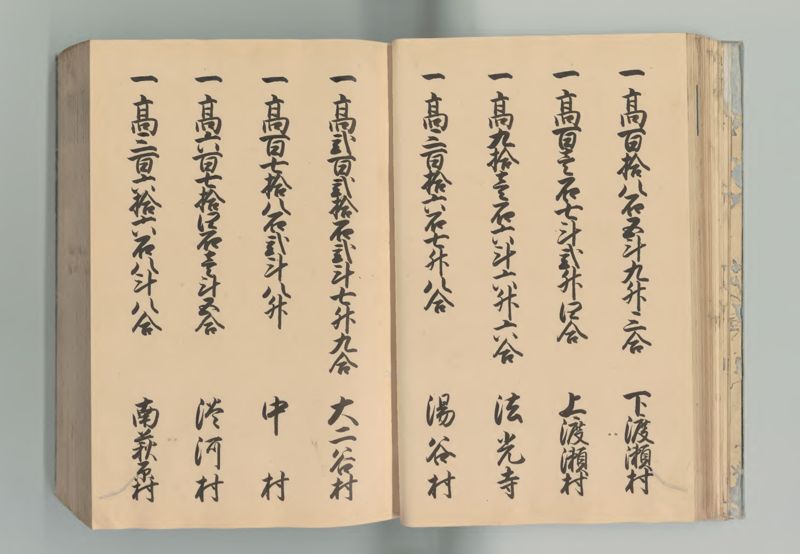 一高百拾八石五斗九升三合 下渡瀬村
一高百壱石七斗弐升四合 上渡瀬村
一高九拾壱石六斗六升六合 法光寺
一高三百拾六石七升八合 湯谷村
一高弐百弐拾石弐斗七升九合 大二谷村
一高百七拾八石弐斗八升 中村
一高六百七拾四石壱斗五合 河村
一高三百六拾六石八斗八合 南萩原村